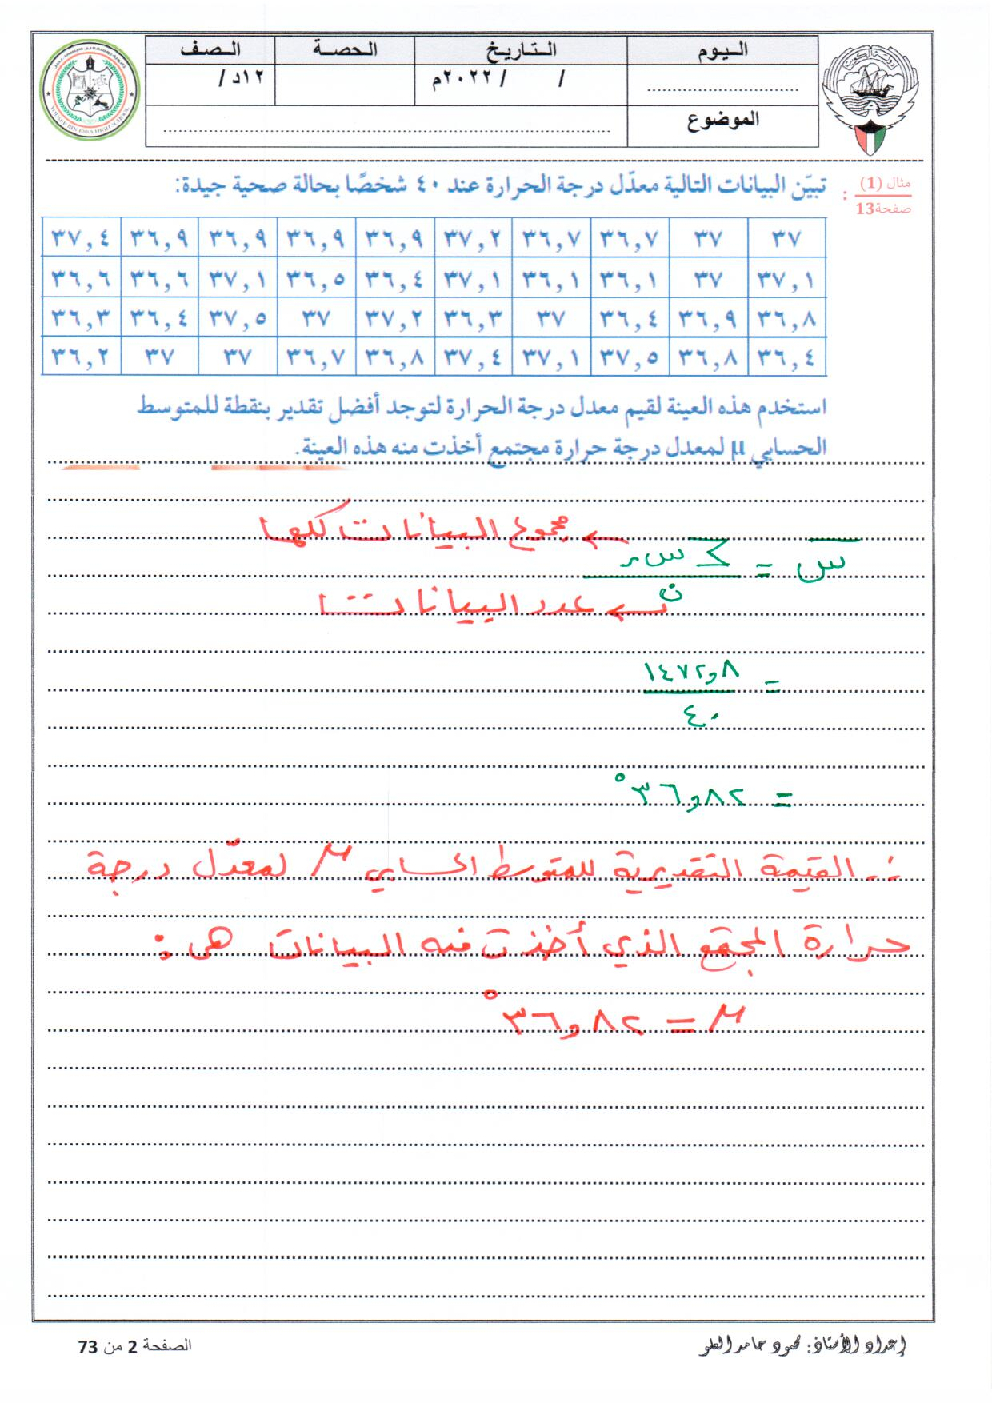 اليوم التاريخ الحصة الصف
.................... / / ٢٠٢٢م ١٢د /
الموضوع ....................
مثال (1)
صفحة13
: تبيّن البيانات التالية معدّل درجة الحرارة عند ٤٠ شخصًا بحالة صحية جيدة:
٣٧ ٣٧ ٣٦,٧ ٣٦,٧ ٣٧,٢ ٣٦,٩ ٣٦,٩ ٣٦,٩ ٣٦,٩ ٣٧,٤
٣٧,١ ٣٧ ٣٦,١ ٣٦,١ ٣٧,١ ٣٦,٤ ٣٦,٥ ٣٧,١ ٣٦,٦ ٣٦,٦
٣٦,٨ ٣٦,٩ ٣٦,٤ ٣٧ ٣٦,٣ ٣٧,٢ ٣٧ ٣٧,٥ ٣٦,٤ ٣٦,٣
٣٦,٤ ٣٦,٨ ٣٧,٥ ٣٧,١ ٣٧,٤ ٣٦,٨ ٣٦,٧ ٣٧ ٣٧ ٣٦,٢
استخدم هذه العينة لقيم معدل درجة الحرارة لتوجد أفضل تقدير بنقطة للمتوسط
الحسابي μ لمعدل درجة حرارة مجتمع أخذت منه هذه العينة.
س̅ = ∑ س ر ← مجموع البيانات كلها
ن ← عدد البيانات
= ١٤٧٢,٨
٤٠
= ٣٦,٨٢°
∴ القيمة التقديرية للمتوسط الحسابي μ لمعدّل درجة
حرارة المجتمع الذي أخذت منه البيانات هي :
μ = ٣٦,٨٢°
إعداد الأستاذ: محمود حامد
الصفحة 2 من 73